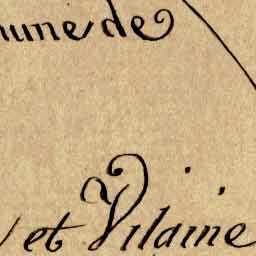 mune de
et Vilaine